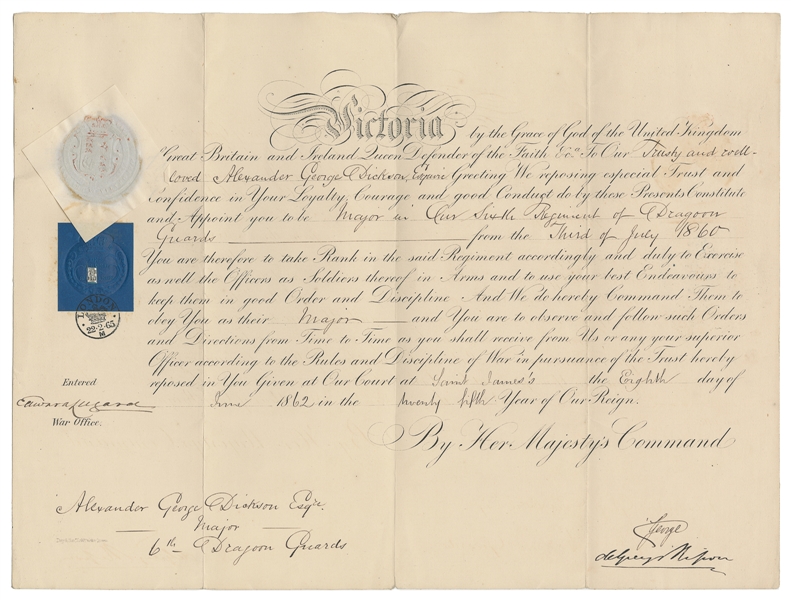 Victoria by the Grace of God of the United Kingdom
Great Britain and Ireland Queen Defender of the Faith &ca To Our Trusty and well-
loved Alexander George Dickson, Esquire Greeting We reposing especial Trust and
Confidence in Your Loyalty, Courage and good Conduct do by these Presents Constitute
and Appoint you to be Major in Our Sixth Regiment of Dragoon
Guards from the Third of July 1860
You are therefore to take Rank in the said Regiment accordingly and duly to Exercise
as well the Officers as Soldiers thereof in Arms and to use your best Endeavours to
keep them in good Order and Discipline And We do hereby Command Them to
LONDON
22·2·65
M
obey You as their Major and You are to observe and follow such Orders
and Directions from Time to Time as you shall receive from Us or any your superior
Officer according to the Rules and Discipline of War in pursuance of the Trust hereby
reposed in You Given at Our Court at Saint James's the Eighth day of
June 1862 in the twenty fifth Year of Our Reign.
Entered
Edward Lugard
War Office.
By Her Majesty's Command
Alexander George Dickson Esqre.
Major
6th Dragoon Guards
George
de Grey & Ripon